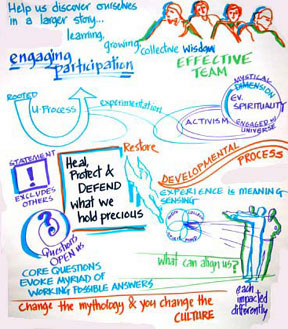 Help us discover ourselves
in a larger story...
learning,
growing,
collective wisdom
engaging
participation
EFFECTIVE
TEAM
MYSTICAL
DIMENSION
EV.
SPIRITUALITY
ROOTED
U-Process
Experimentation
ACTIVISM
ENGAGED w/
UNIVERSE
Restore
DEVELOPMENTAL
PROCESS
STATEMENT
!
EXCLUDES
OTHERS
Heal,
Protect &
DEFEND
what we
hold precious
EXPERIENCE IS MEANING
SENSING
?
Questions
OPEN US
CORE QUESTIONS
EVOKE MYRIAD OF
WORKING POSSIBLE ANSWERS
what can align us?
each
impacted
differently
Change the mythology & you change the
CULTURE